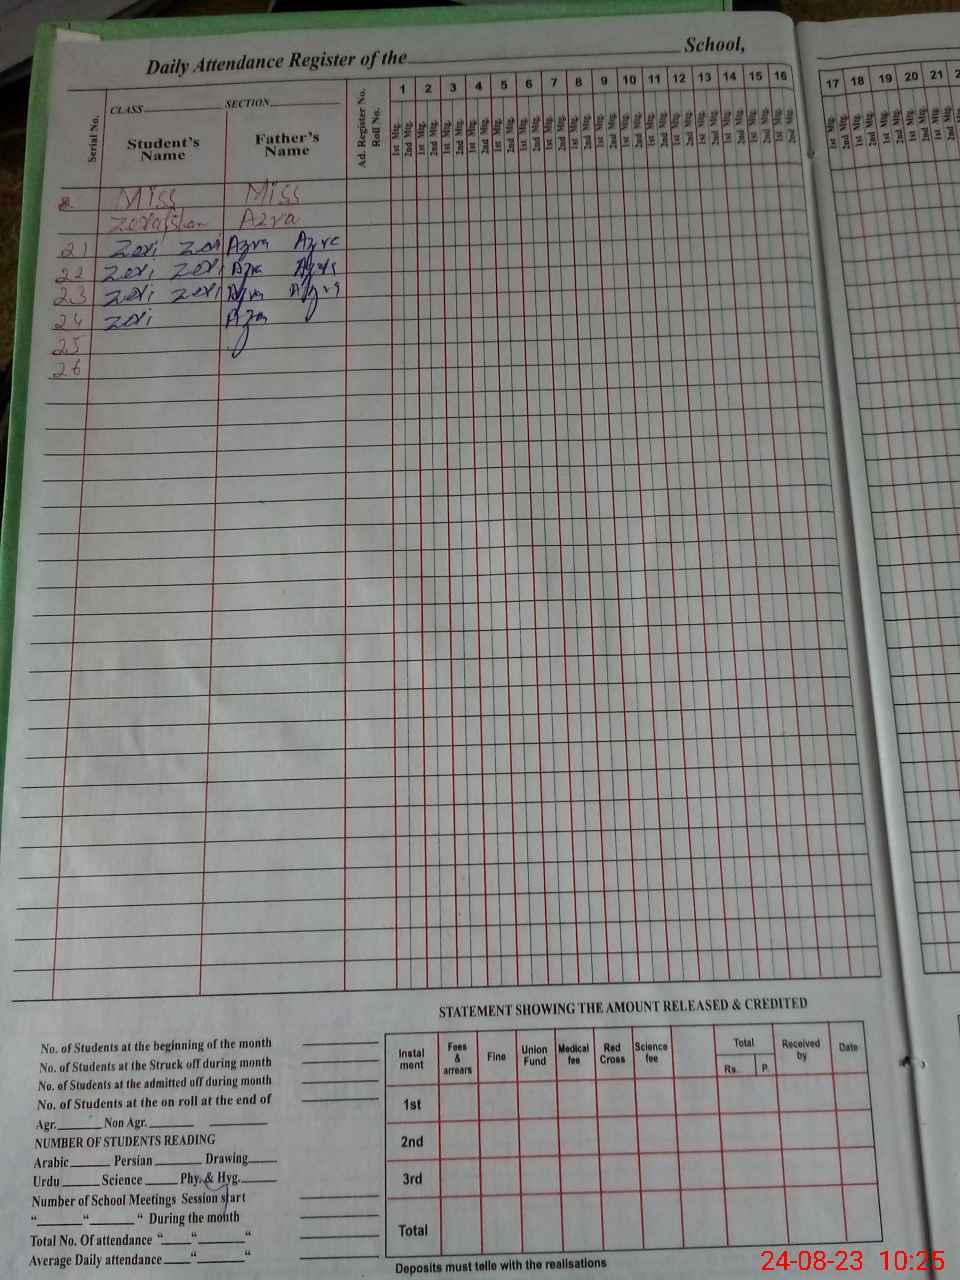 Daily Attendance Register of the School,
CLASS SECTION
Serial No. Student's Name Father's Name Ad. Register No. Roll No. 1 2 3 4 5 6 7 8 9 10 11 12 13 14 15 16 17 18 19 20 21
1st Mtg. 2nd Mtg. 1st Mtg. 2nd Mtg. 1st Mtg. 2nd Mtg. 1st Mtg. 2nd Mtg. 1st Mtg. 2nd Mtg. 1st Mtg. 2nd Mtg. 1st Mtg. 2nd Mtg. 1st Mtg. 2nd Mtg. 1st Mtg. 2nd Mtg. 1st Mtg. 2nd Mtg. 1st Mtg. 2nd Mtg. 1st Mtg. 2nd Mtg. 1st Mtg. 2nd Mtg. 1st Mtg. 2nd Mtg. 1st Mtg. 2nd Mtg. 1st Mtg. 2nd Mtg. 1st Mtg. 2nd Mtg. 1st Mtg. 2nd Mtg. 1st Mtg. 2nd Mtg. 1st Mtg. 2nd Mtg. 1st Mtg. 2nd Mtg.
Miss Miss
Azra
21 Zari Zari Azra Azra
22 Zari Zari Azra
23 Zari Zari Azra Azra
24 Zari Azra
25
26
STATEMENT SHOWING THE AMOUNT RELEASED & CREDITED
No. of Students at the beginning of the month
No. of Students at the Struck off during month
No. of Students at the admitted off during month
No. of Students at the on roll at the end of
Agr. Non Agr.
NUMBER OF STUDENTS READING
Arabic Persian Drawing
Urdu Science Phy. & Hyg.
Number of School Meetings Session start
“ “ “ During the month
Total No. Of attendance “ “ “
Average Daily attendance “ “
Instal ment Fees & arrears Fine Union Fund Medical fee Red Cross Science fee Total Rs. P. Received by Date
1st
2nd
3rd
Total
Deposits must telle with the realisations
24-08-23 10:25